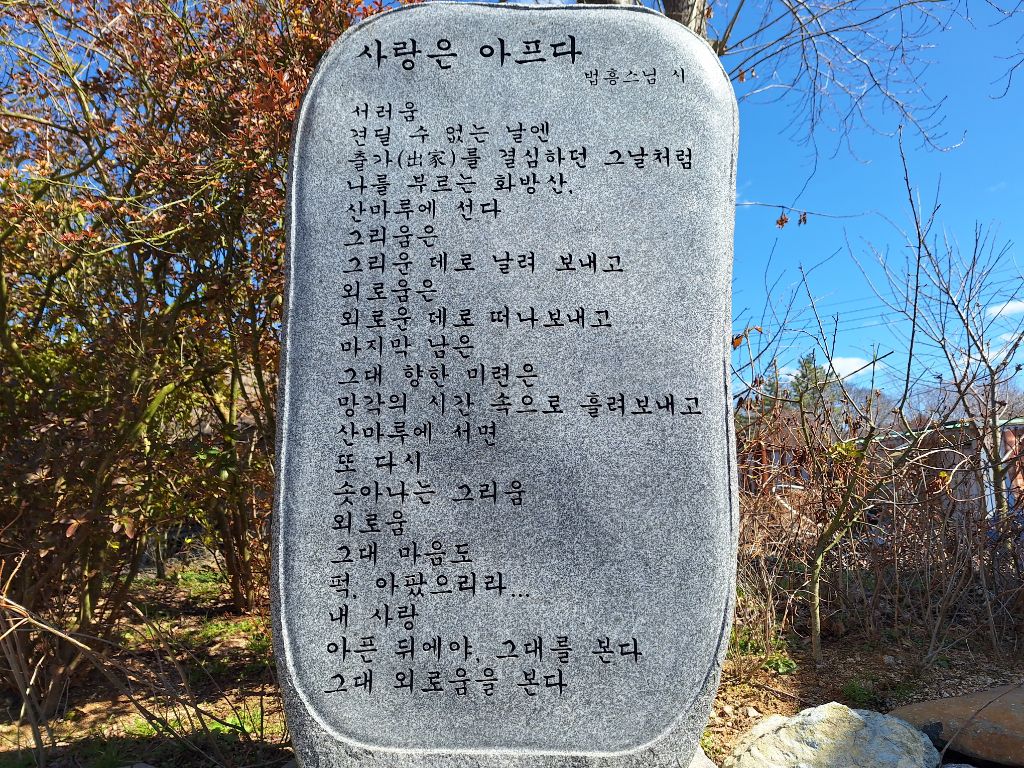 사랑은 아프다
법흥스님 시
서러움
견딜 수 없는 날엔
출가(出家)를 결심하던 그날처럼
나를 부르는 화방산,
산마루에 선다
그리움은
그리운 데로 날려 보내고
외로움은
외로운 데로 떠나보내고
마지막 남은
그대 향한 미련은
망각의 시간 속으로 흘려보내고
산마루에 서면
또 다시
솟아나는 그리움
외로움
그대 마음도
퍽, 아팠으리라...
내 사랑
아픈 뒤에야, 그대를 본다
그대 외로움을 본다